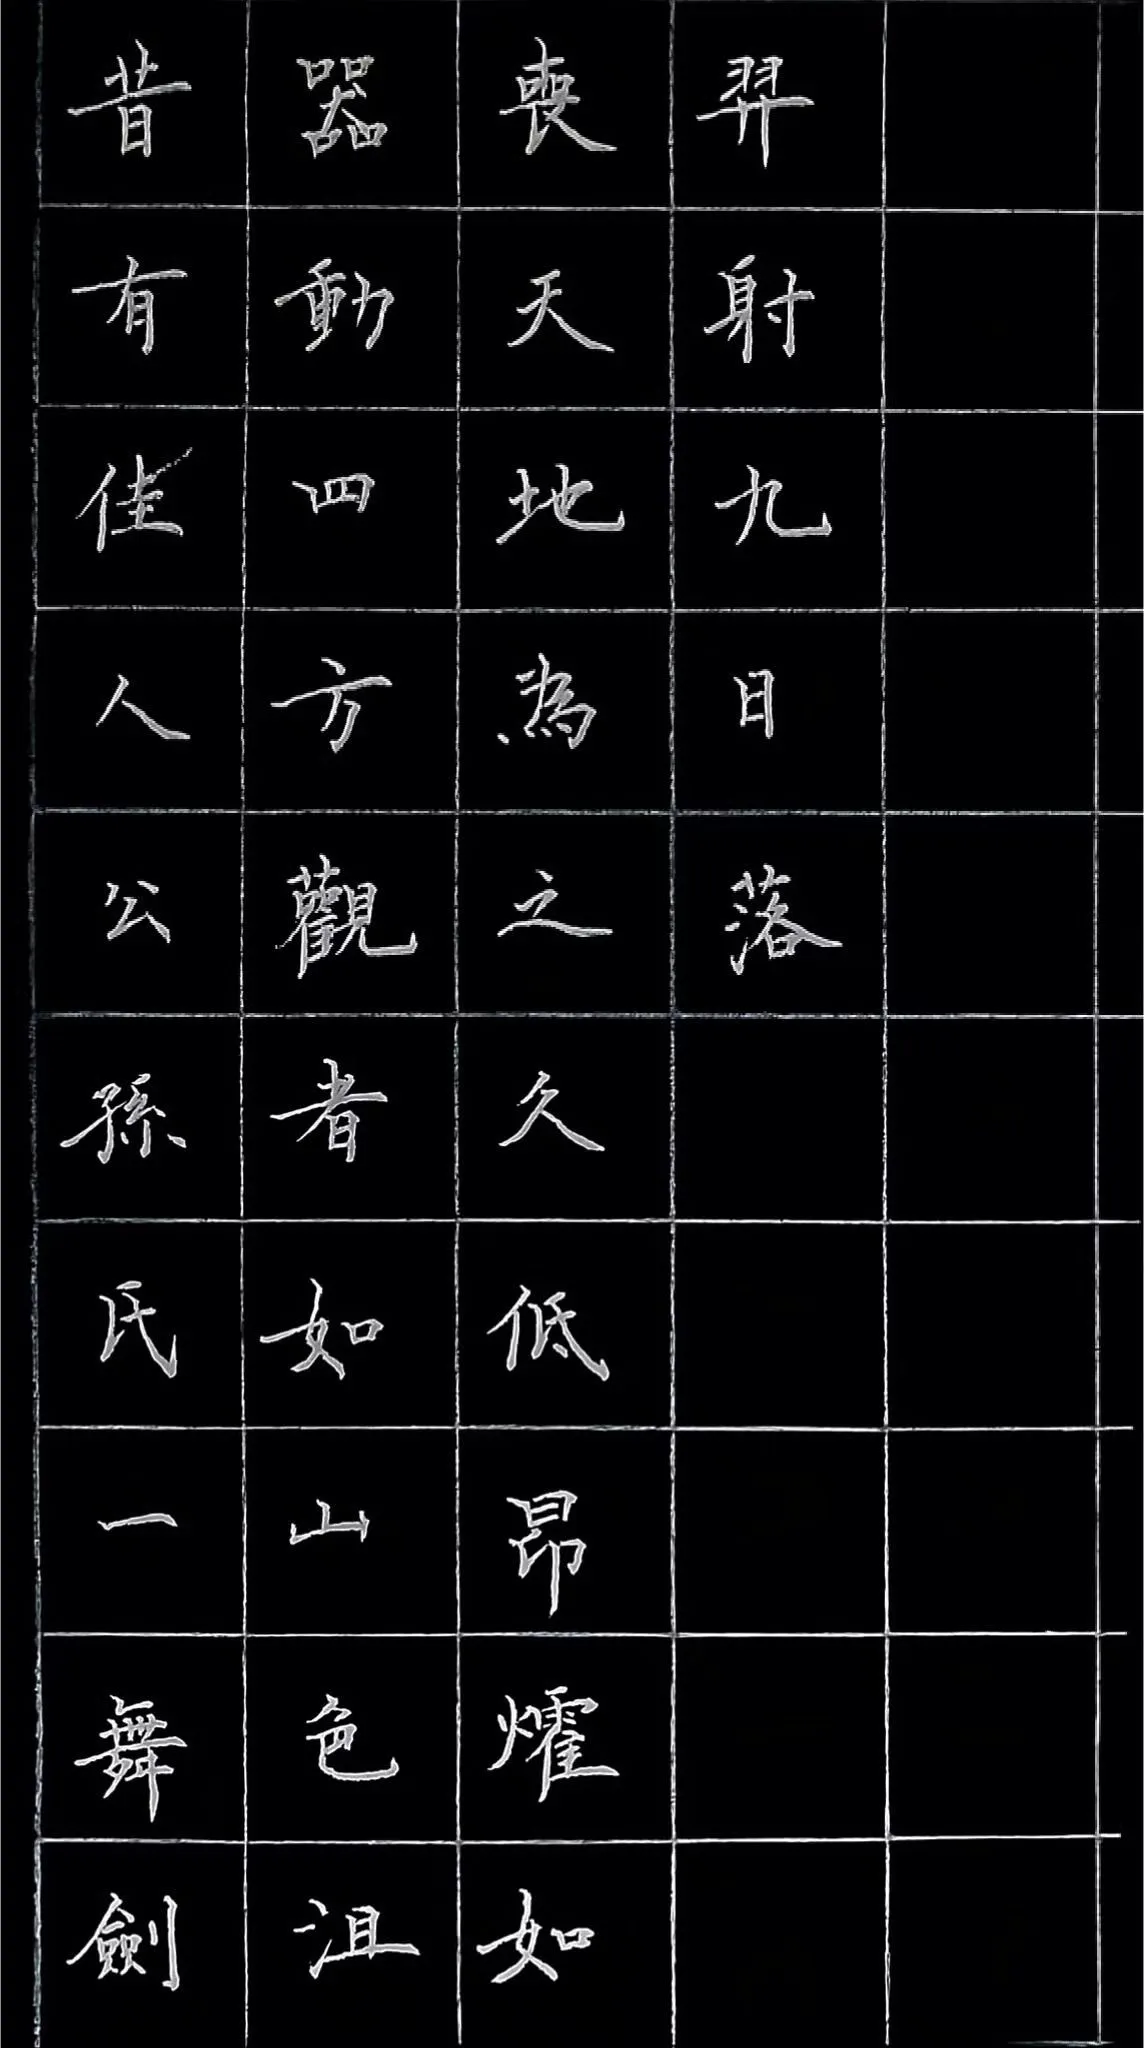 昔有佳人公孫氏一舞劍
器動四方觀者如山色沮
喪天地為之久低昂㸌如
羿射九日落